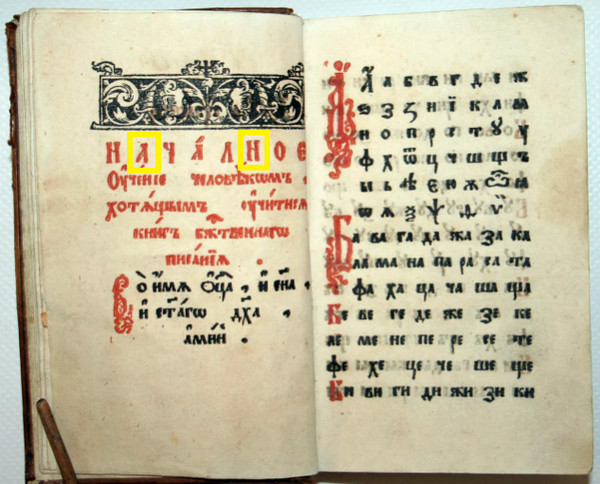 НАЧА́ЛНОЕ
Оу҆че́нїе человѣ́кѡмъ
хотѧ́щымъ оу҆чи́тисѧ
книгъ бж҃твеннагѡ
писа́нїѧ .
Во и҆́мѧ ѻ҆ц҃а , и҆ сн҃а ,
и҆ ст҃а́гѡ дх҃а .
а҆ми́н .
А а б в г д е ж
ѕ з ꙁ и ї к л м
н о п р с т ꙋ у
ф х ѿ ц ч ш щ ъ
ы ь ѣ є ю ж ꙗ
ѡ ѧ ѯ ѱ ѵ
Ба ва га да жа за ка
ла ма на па ра са та
фа ха ца ча ша ща
Бе ве ге де же зе ке
ле ме не пе ре се те
фе хе це че ше ще
Би ви ги ди жи зи ки